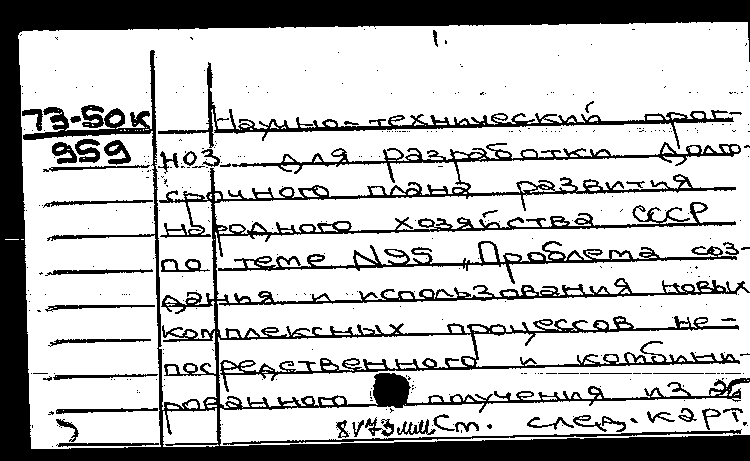 1.
73-50к Научно-технический прог-
959 ноз для разработки долго-
срочного плана развития
народного хозяйства СССР
по теме N95 „Проблема соз-
дания и использования новых
комплексных процессов не-
посредственного и комбини-
рованного получения из
См. след. карт.